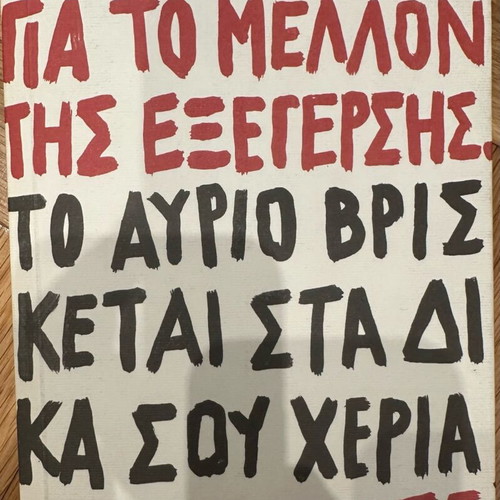 ΓΙΑ ΤΟ ΜΕΛΛΟΝ
ΤΗΣ ΕΞΕΓΕΡΣΗΣ.
ΤΟ ΑΥΡΙΟ ΒΡΙΣ
ΚΕΤΑΙ ΣΤΑ ΔΙ
ΚΑ ΣΟΥ ΧΕΡΙΑ